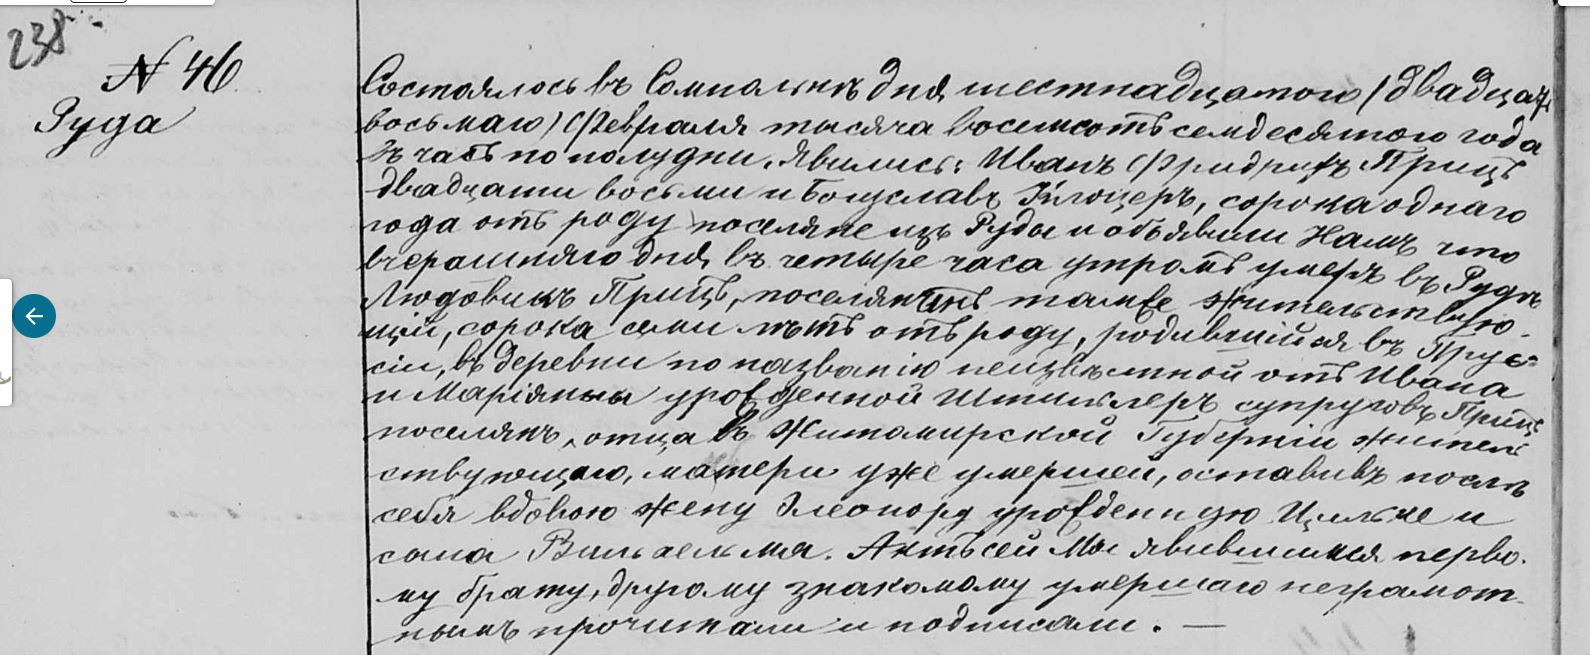 238
N 46
Руда
Состоялось въ Сомпольнѣ дня шестнадцатого (двадцать
восьмаго) Февраля тысяча восемсотъ семдесятого года
въ часъ по полудни. Явились: Иванъ Фридрихъ Прицъ
двадцати восьми и Богуславъ Клоцеръ, сорока однаго
года отъ роду поселяне изъ Руды и объявили Намъ что
вчерашняго дня въ четыре часа утромъ умеръ въ Рудѣ
Людовикъ Прицъ, поселянинъ тамже жительствую-
щій, сорока семи лѣтъ отъ роду, родившійся въ Прус-
сіи, въ деревни по названію неизвѣстной отъ Ивана
и Маріянны урожденной Штиклеръ супруговъ Прицъ
поселянъ, отца въ Житомирской Губерніи жител
ствующаго, матери уже умершей, оставивъ послѣ
себя вдовою жену Элеонору урожденную Цильке и
сына Вильгельма. Актъ сей Мы явившимся перво-
му брату, другому знакомому умершаго неграмот-
нымъ прочитали и подписали. —